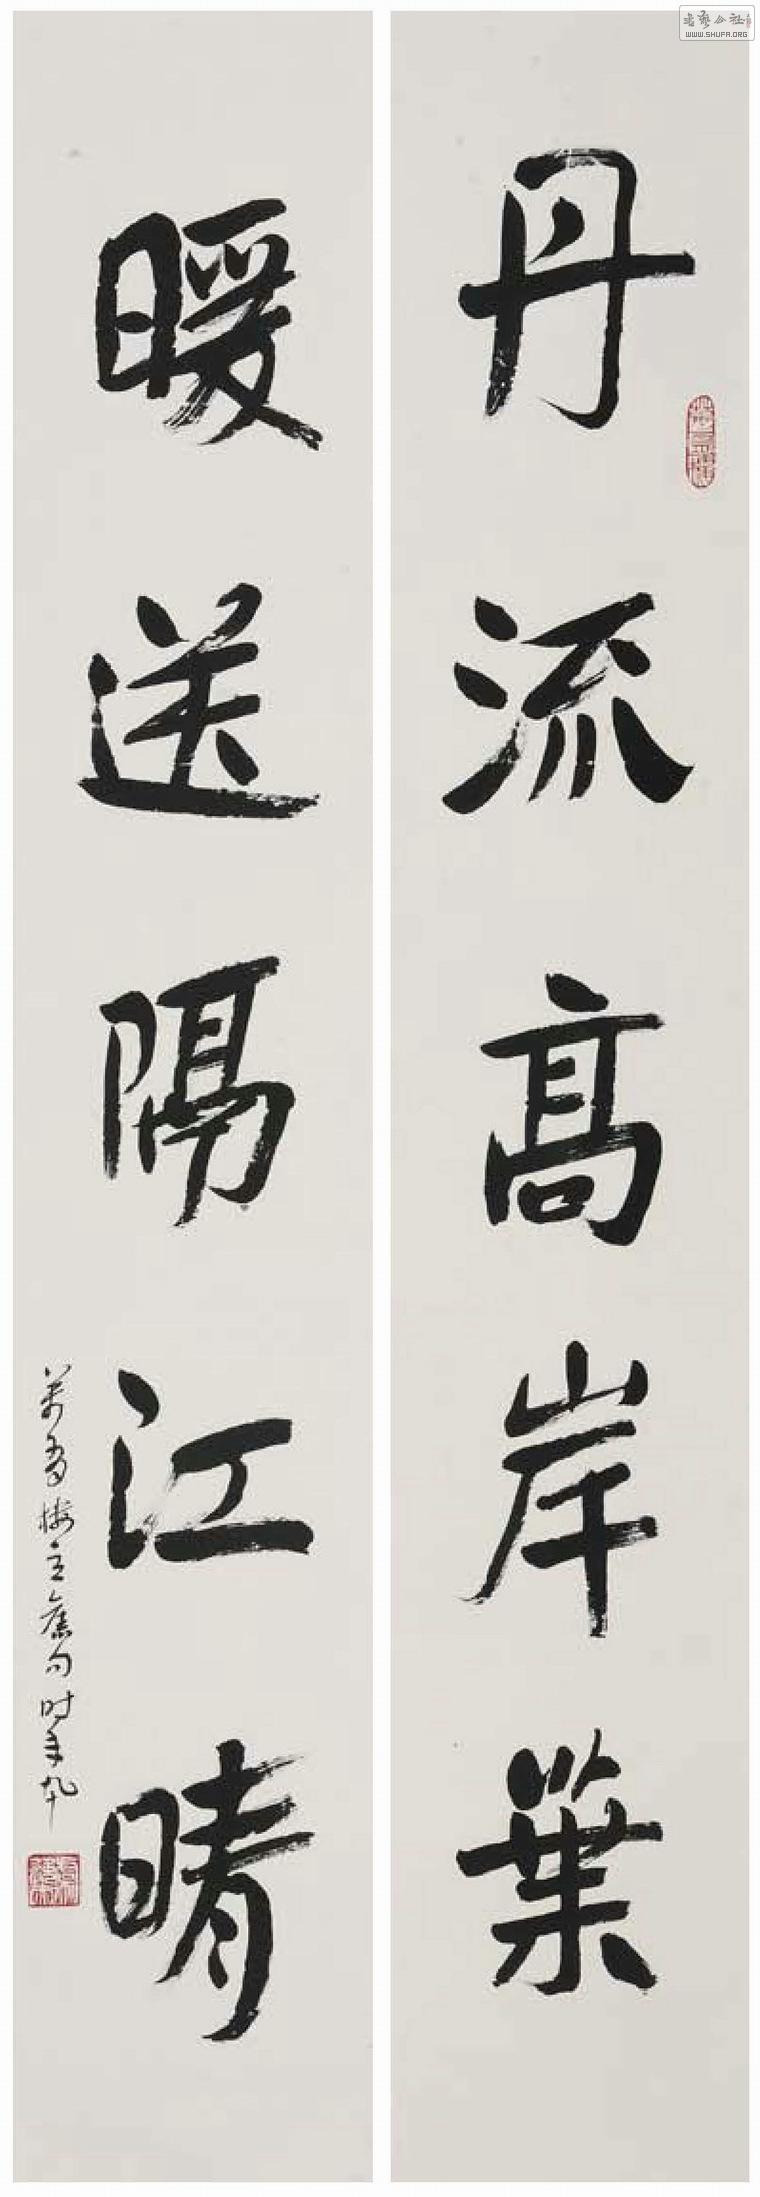 书艺公社
WWW.SHUFA.ORG
丹流高岸葉
暖送隔江晴
萬有樓主舊句时年九十